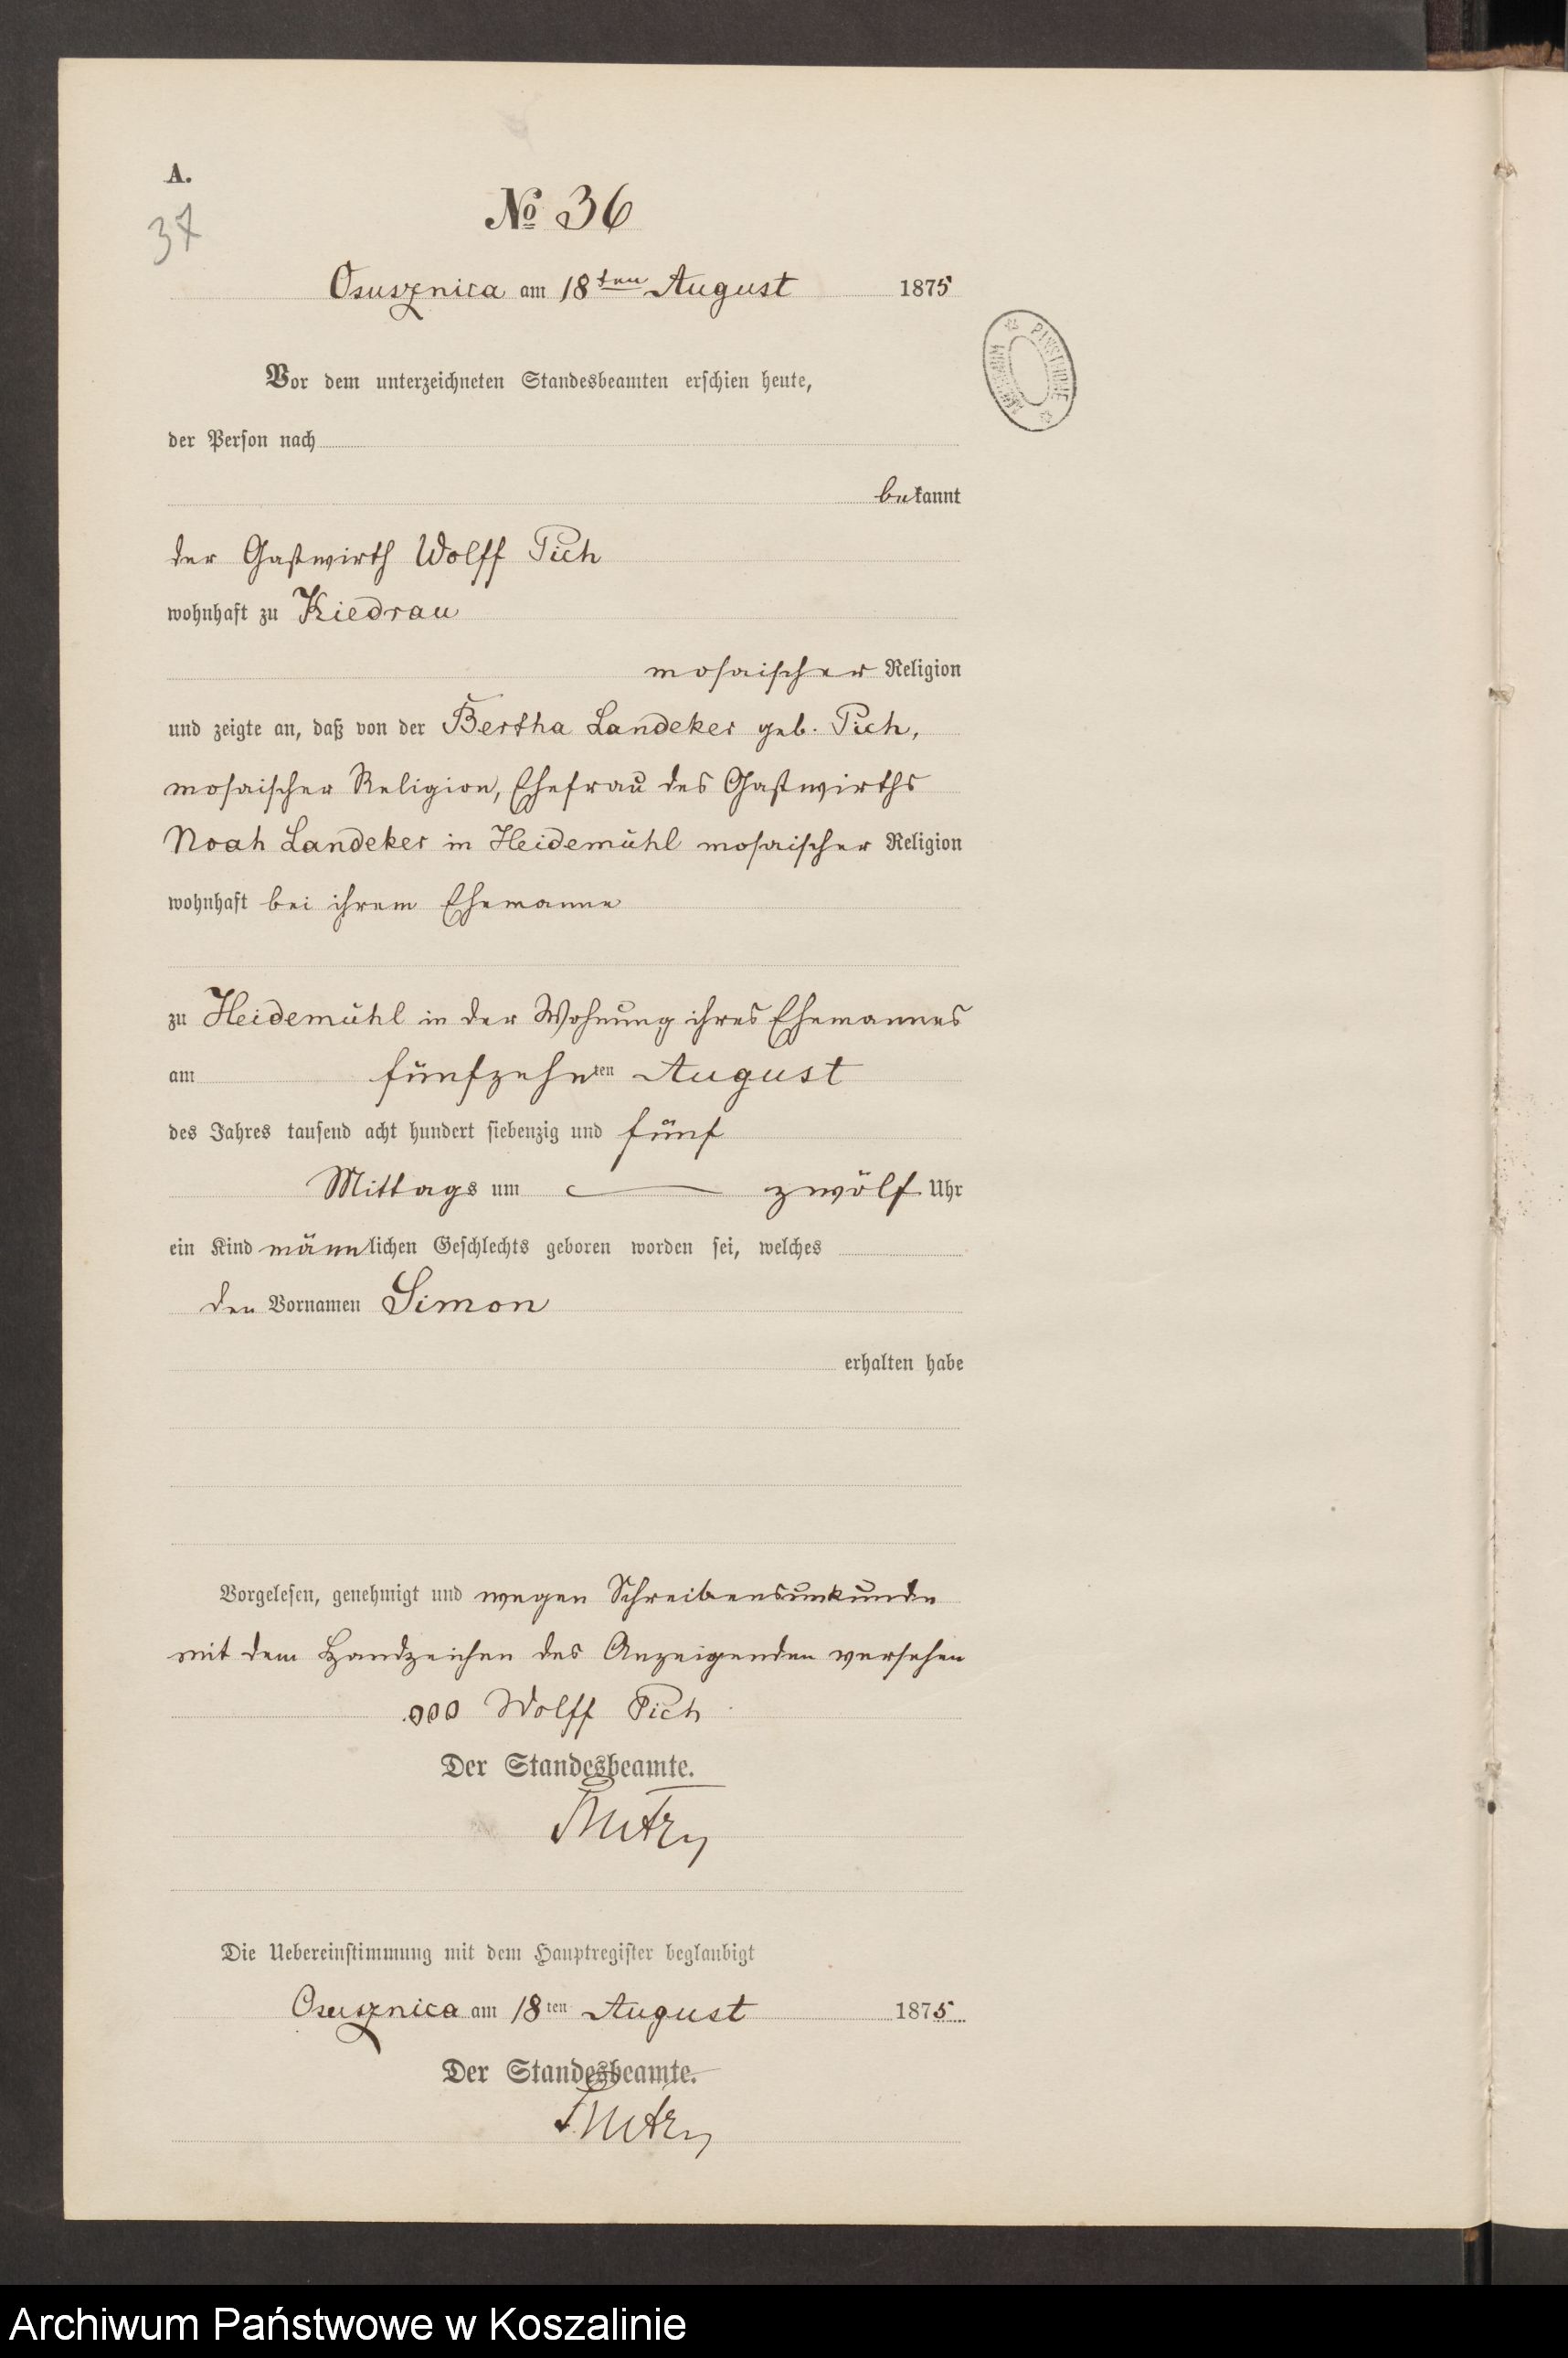 A.
37
No 36
Osusznica am 18ten August 1875
Vor dem unterzeichneten Standesbeamten erschien heute,
der Person nach
bekannt
der Gastwirth Wolff Pich
wohnhaft zu Kiedrau
mosaischer Religion
und zeigte an, daß von der Bertha Landeker geb. Pich,
mosaischer Religion, Ehefrau des Gastwirths
Noah Landeker in Heidemühl mosaischer Religion
wohnhaft bei ihrem Ehemanne
zu Heidemühl in der Wohnung ihres Ehemannes
am fünfzehnten August
des Jahres tausend acht hundert siebenzig und fünf
Mittags um zwölf Uhr
ein Kind männlichen Geschlechts geboren worden sei, welches
den Vornamen Simon
erhalten habe
Vorgelesen, genehmigt und wegen Schreibensunkunde
mit dem Handzeichen des Anzeigenden versehen
ooo Wolff Pich
Der Standesbeamte.
Die Uebereinstimmung mit dem Hauptregister beglaubigt
Osusznica am 18ten August 1875
Der Standesbeamte.
Archiwum Państwowe w Koszalinie